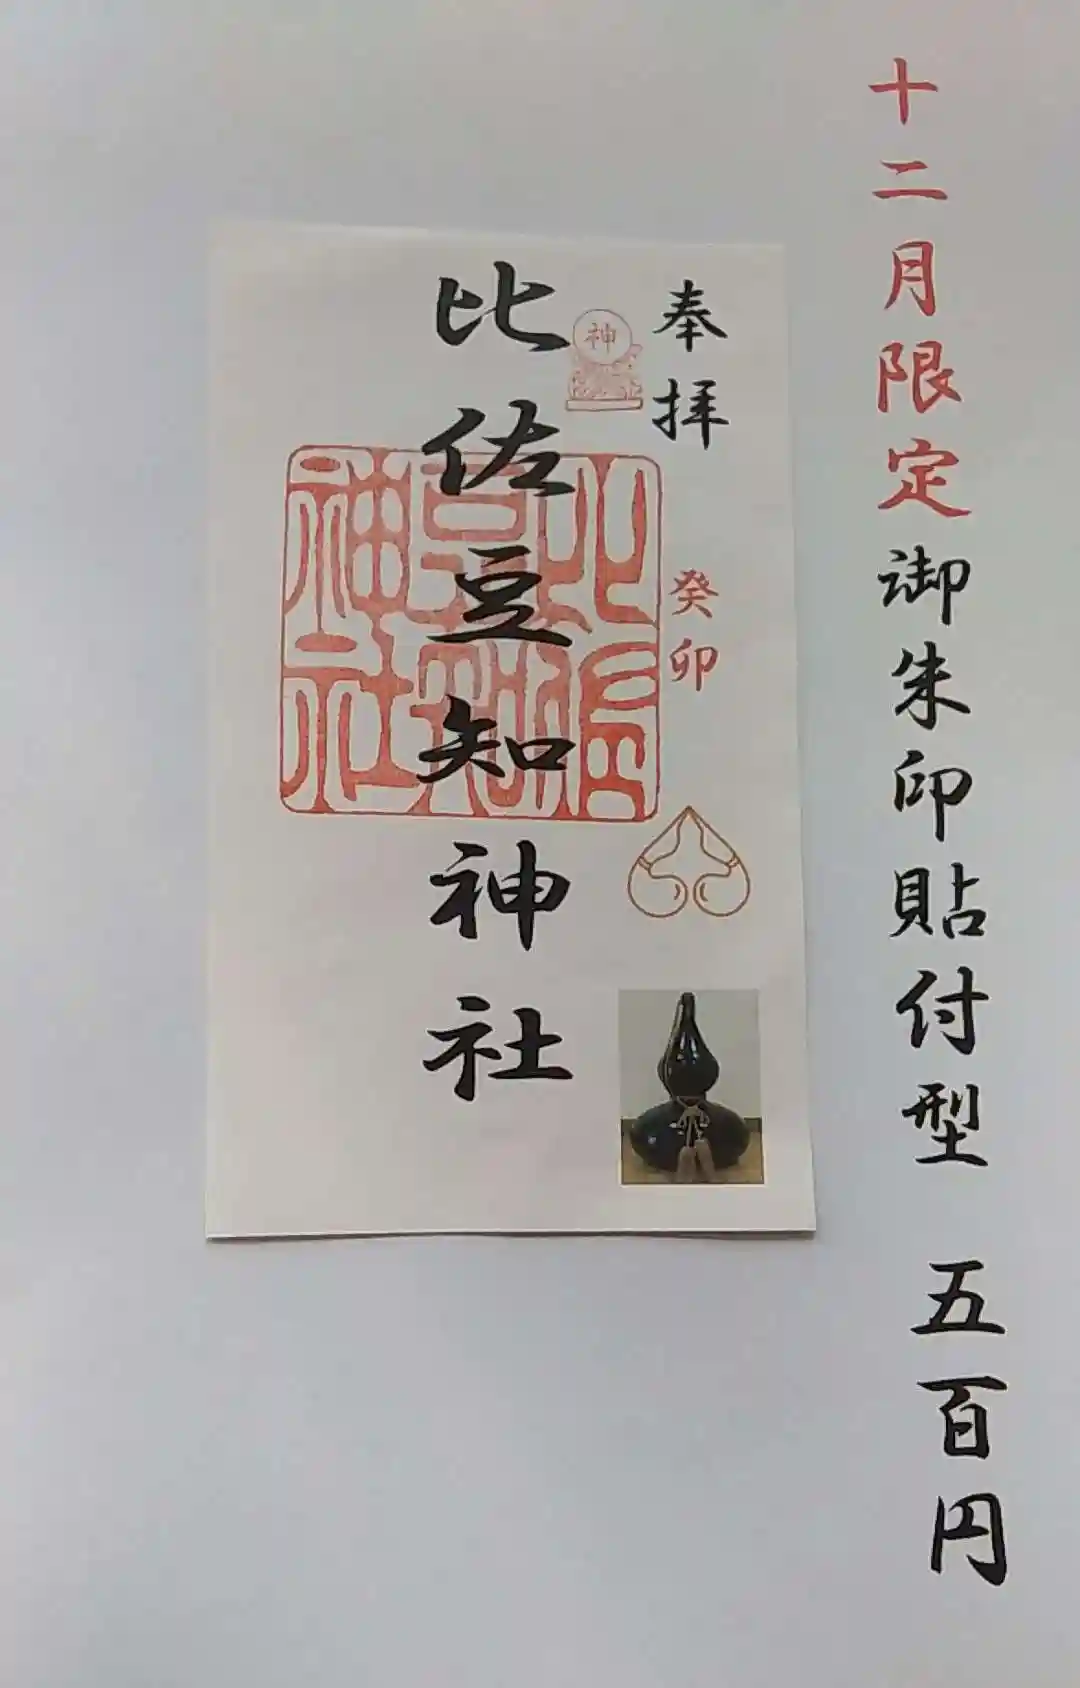 十二月限定御朱印貼付型 五百円
奉拝
癸卯
神
比佐豆知神社
比佐豆知神社